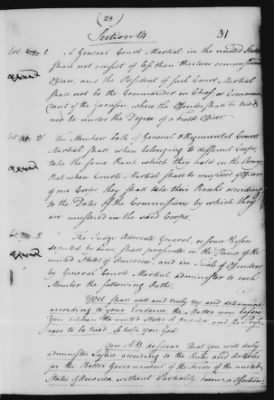 (24)
Section 14. 31
Art. 1. A General Court Martial in the united States
shall not consist of less than thirteen commissioned
Officers, and the President of such Court Martial
shall not be the Commander in Chief or Commandant
of the Garrison, where the Offender shall be tried,
nor be under the Degree of a Field Officer.
Art. 2. The Members both of General & Regimental Courts
Martial shall when belonging to different Corps,
take the same Rank which they hold in the Army
But when Courts Martial shall be composed of Officers
of one Corps they shall take their Ranks according
to the Dates of the Commissions by which they
are mustered in the said Corps.
Art. 3 The Judge Advocate General, or some Person
deputed by him shall prosecute in the Name of the
united States of America and in Trials of Offenders
by General Courts Martial administer to each
Member the following Oaths.
You shall well and truly try and determine
according to your Evidence the Matter now before
You between the united States of America, and the Prisoner
to be tried. So help you God.
You A.B. do swear that You will duly
administer Justice according to the Rules and Articles
for the Better Government of the Forces of the united
States of America without Partiality Favour or Affection,